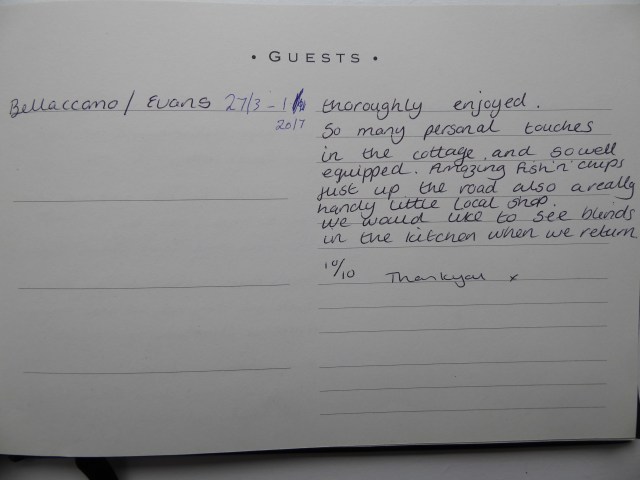 • GUESTS •
Bellaccomo / Evans 27/3 - 1/4
2017
thoroughly enjoyed.
So many personal touches
in the cottage and so well
equipped. Amazing fish 'n' chips
just up the road also a really
handy little local shop.
we would like to see blinds
in the kitchen when we return
10/10 Thankyou x